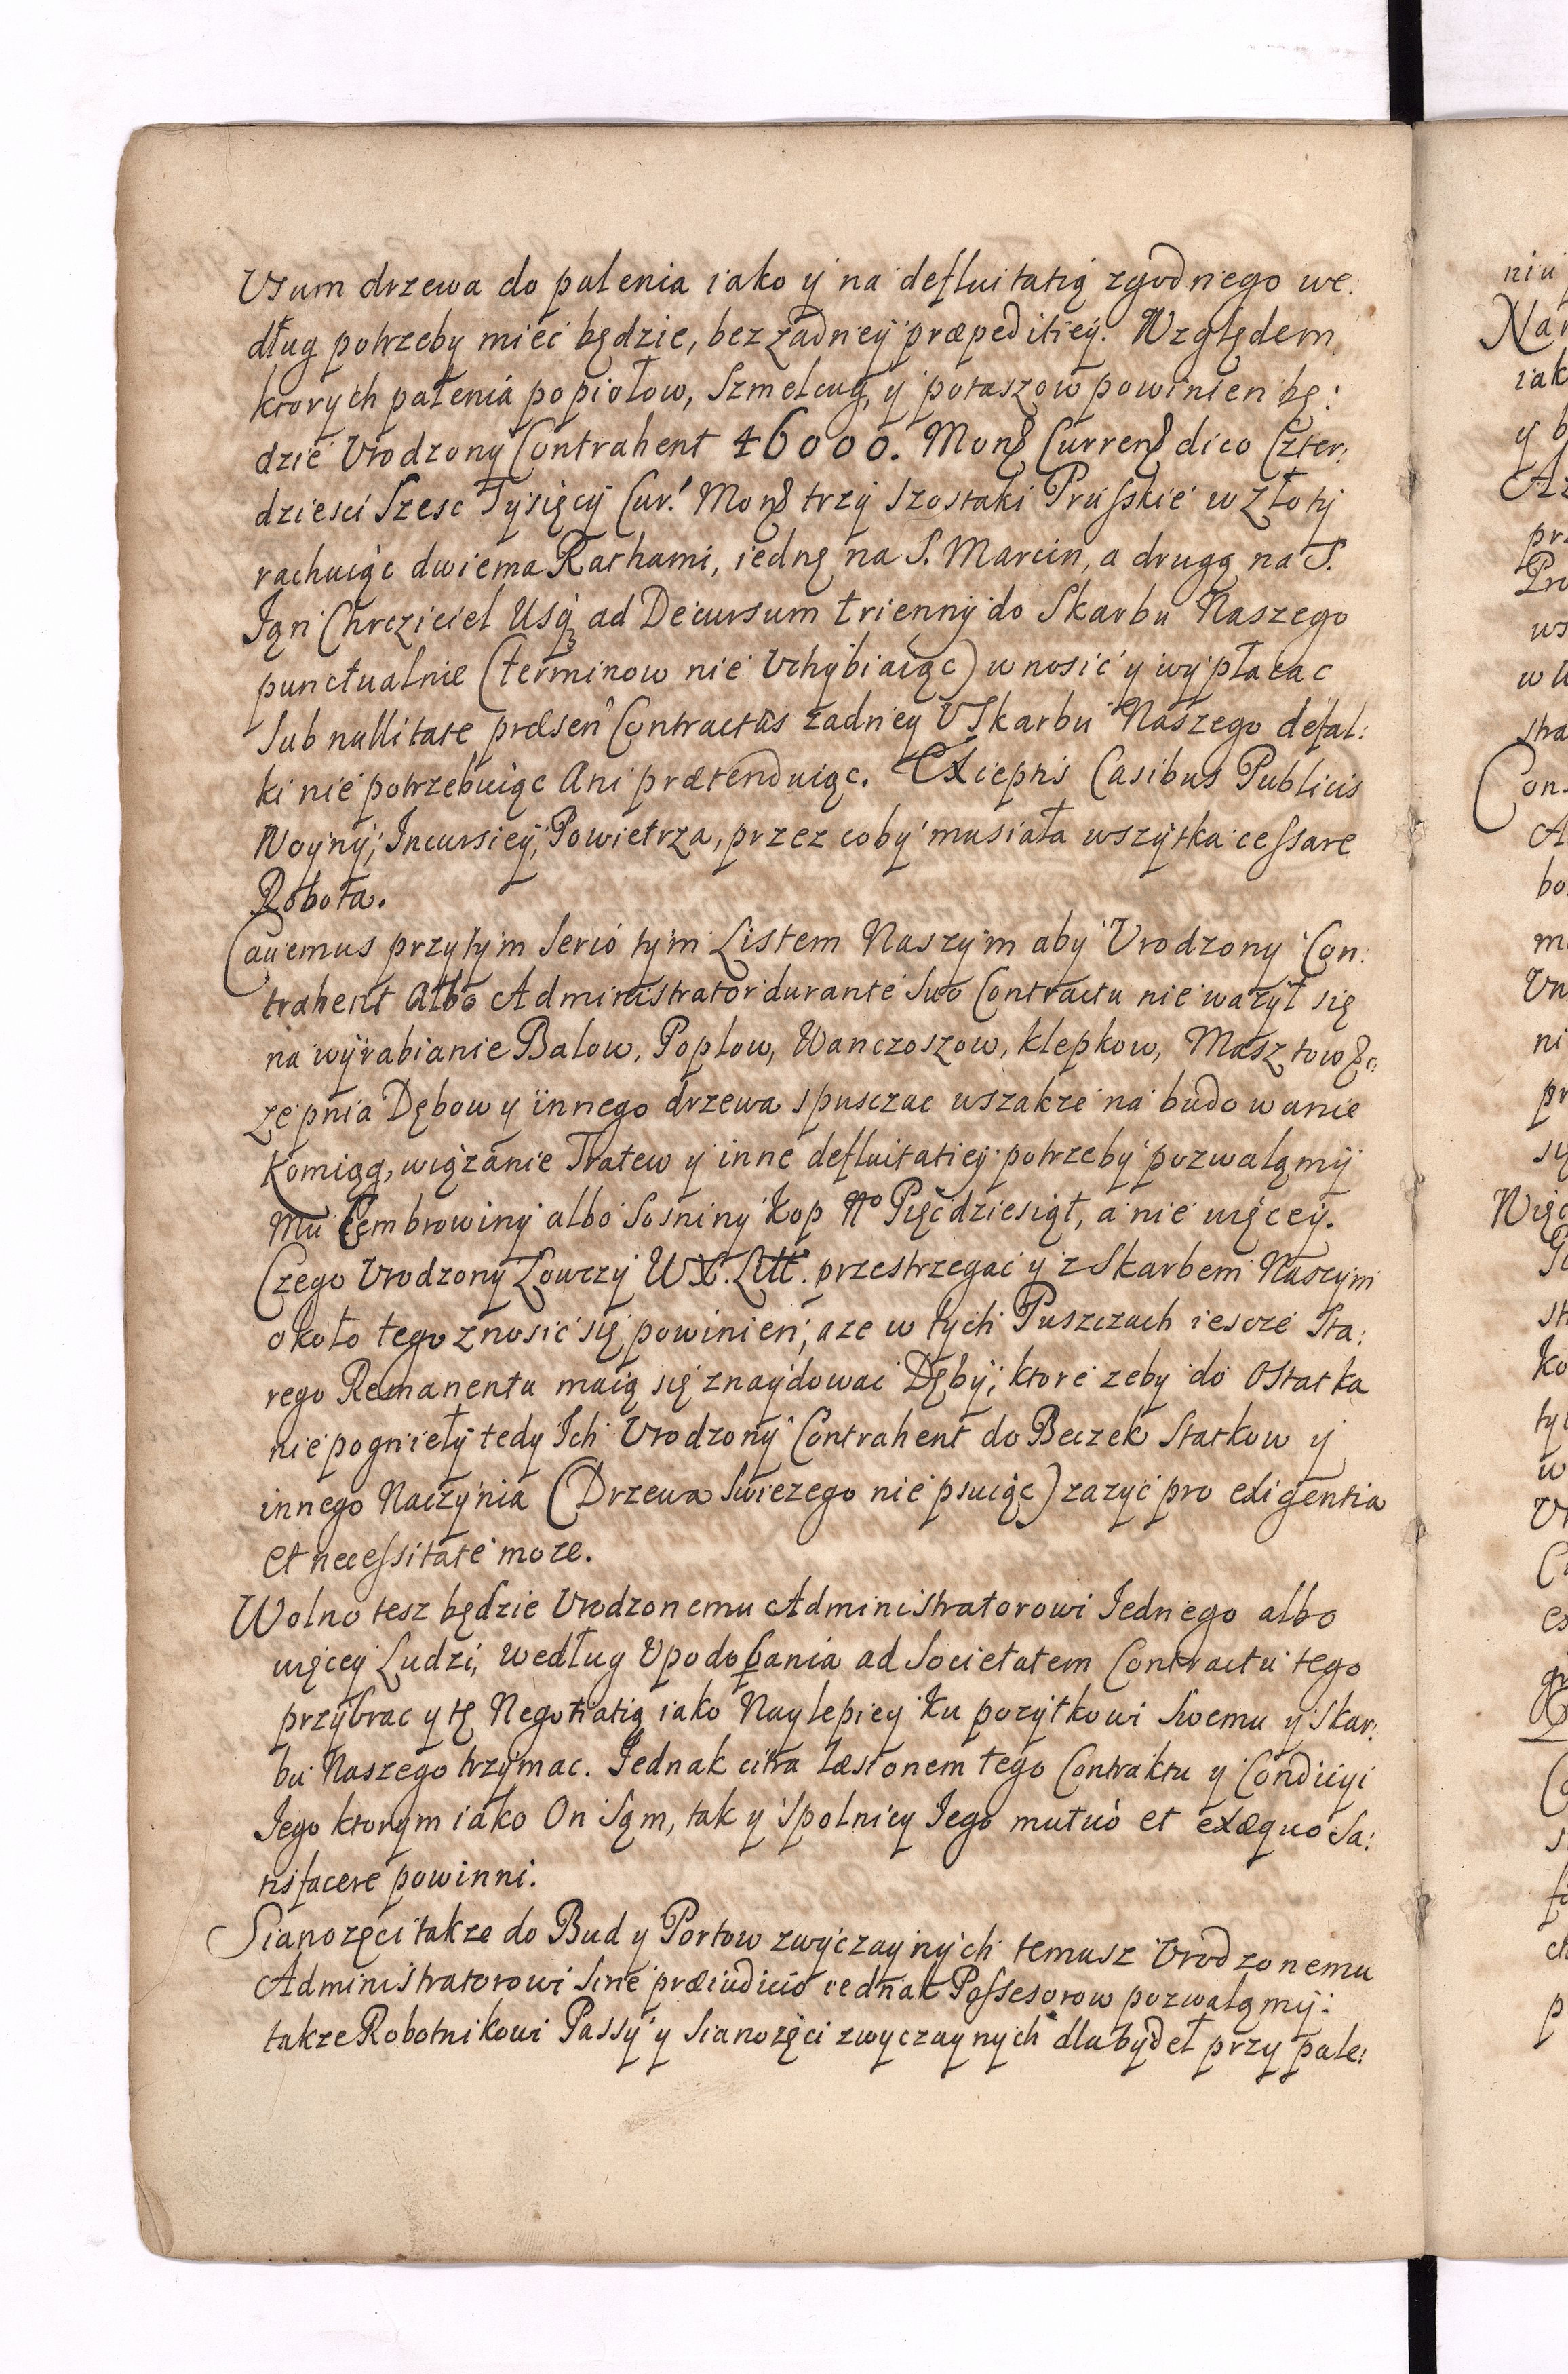 Usum drzewa do palenia iako y na defluitatią zgodnego we:
dług potrzeby miec będzie, bez żadney præpeditiey. Względem
ktorych palenia popiołow, Szmelcug, y potaszow powinien bę:
dzie Urodzony Contrahent 46000. Mon Curren dico Czter:
dziesci Szesc Tysięcy Cur. Mon trzy Szostaki Prusskie w Złoty
rachuiąc dwiema Rathami, iednę na S. Marcin, a drugą na S.
Ian Chrzciciel Usq ad Decursum trienny do Skarbu Naszego
punctualnie (terminow nie Uchybiaiąc) wnosić y wypłacac
Sub nullitate præsen Contractus zadney U Skarbu Naszego defal:
ki nie potrzebuiąc Ani prætenduiąc. Exceptis Casibus Publicis
Woyny, Incursiey, Powietrza, przez coby musiała wszytka cessare
Robota.
Cauemus przytym Serió tym Listem Naszym aby Urodzony Con:
trahent Albo Administrator durante Suo Contractu nie ważył się
na wyrabianie Balow, Poplow, Wanczoszow, klepkow, Masztow &c:
ze pnia Dębow y innego drzewa spusczac wszakze na budowanie
Komięg, wiązanie Tratew y inne defluitatiey potrzeby pozwalamy
Mu Cembrowiny albo Sosniny Kop No Pięćdziesiąt, a nie więcey.
Czego Urodzony Łowczy WX. Litt. przestrzegać y z Skarbem Naszym
około tego znosić się powinien, a ze w tych Puszczach iescze Sta:
rego Remanentu maią się znaydować Dęby, ktore zeby do Ostatka
nie pognieły tedy Ich Urodzony Contrahent do Beczek Statkow y
innego Naczynia (Drzewa Swiezego nie psuiąc) zazyć pro exigentia
et necessitate moze.
Wolno tesz będzie Urodzonemu Administratorowi Iednego albo
więcey Ludzi, według Upodobania ad Societatem Contractu tego
przybrac y tę Negotiatią iako Naylepiey Ku pozytkowi Swemu y Skar:
bu Naszego trzymac. Iednak citra læsionem tego Contraktu y Condicyi
Iego ktorym iako On Sąm, tak y Spolnicy Iego mutuó et exæquo Sa:
tisfacere powinni.
Sianozęci takze do Bud y Portow zwyczaynych temusz Urodzonemu
Administratorowi Sine præiudicio iednak Possesorow pozwalamy:
takze Robotnikowi Passy y Sianozęci zwyczaynych dla bydeł przy pale: